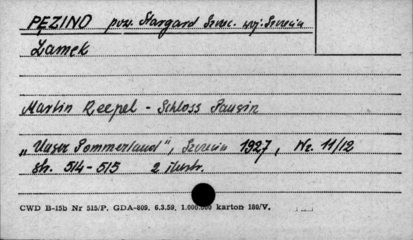 PĘZINO pow. Stargard Szczec. woj. Szczecin
Zamek
Martin Reepel - Schloss Pansin
„Unser Pommerland", Szczecin 1927, Nr. 11/12
str. 514-515 2 ilustr.
CWD B-15b Nr 515/P. GDA-809. 6.3.59. 1.000.000 karton 180/V.